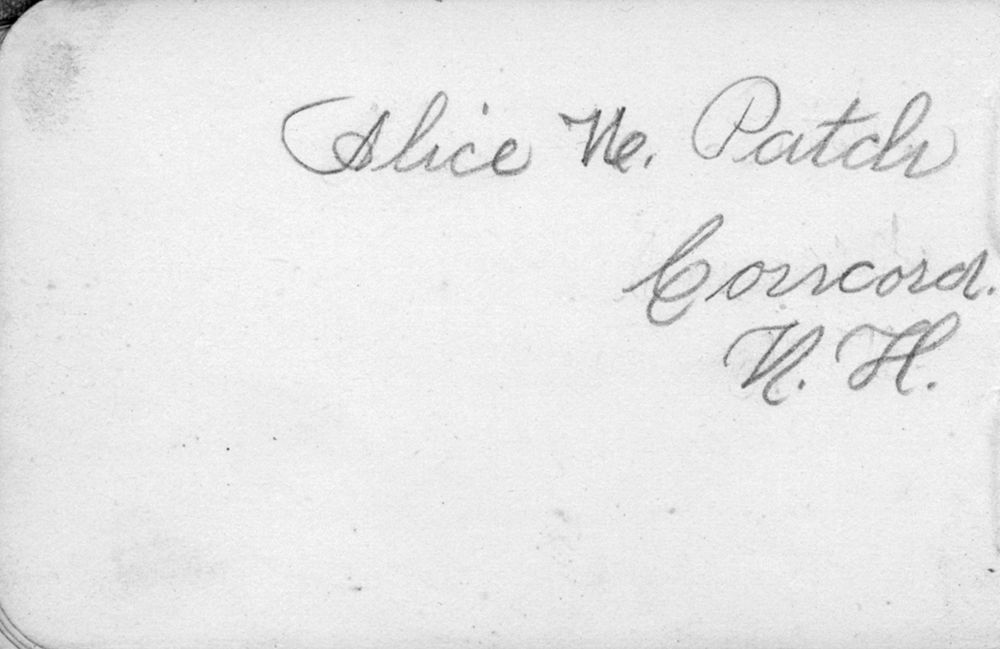 Alice M. Patch
Concord.
N. H.